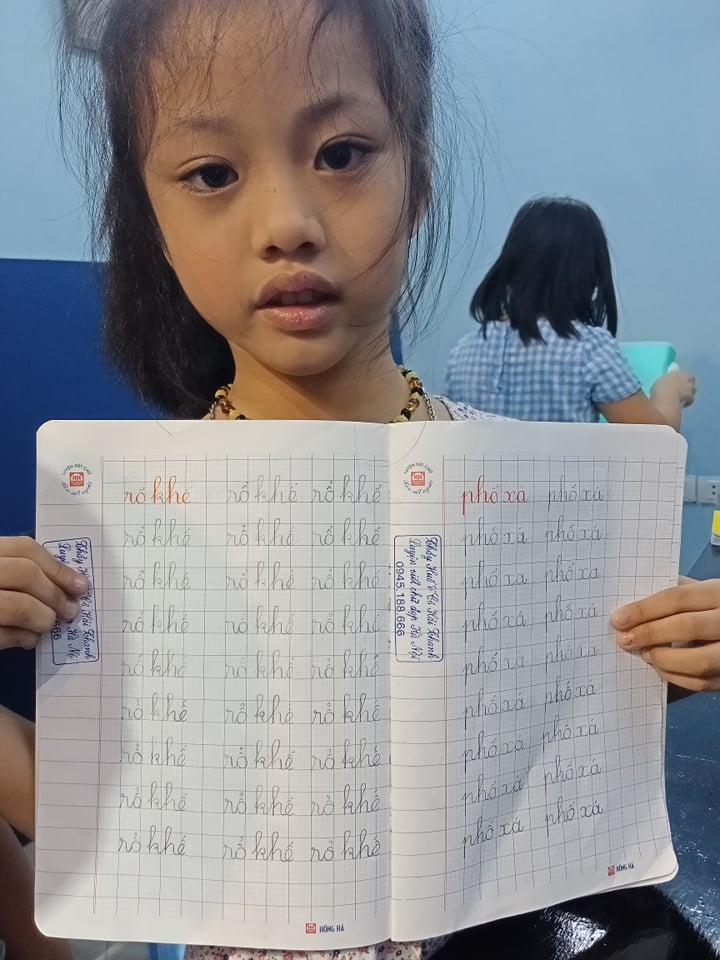 LUYỆN NÉT CHỮ
rổ khế rổ khế rổ khế
rổ khế rổ khế rổ khế
rổ khế rổ khế rổ khế
rổ khế rổ khế rổ khế
rổ khế rổ khế rổ khế
rổ khế rổ khế rổ khế
rổ khế rổ khế rổ khế
rổ khế rổ khế rổ khế
rổ khế rổ khế rổ khế
HỒNG HÀ
LUYỆN NÉT CHỮ
Thầy Huế & Cô Hải Khanh
Luyện viết chữ đẹp Hà Nội
0945.188.666
phố xa phố xá
phố xá phố xá
phố xa phố xa
phố xá phố xá
phố xa phố xá
phố xá phố xá
phố xá phố xá
phố xá phố xá
phố xá phố xá
HỒNG HÀ